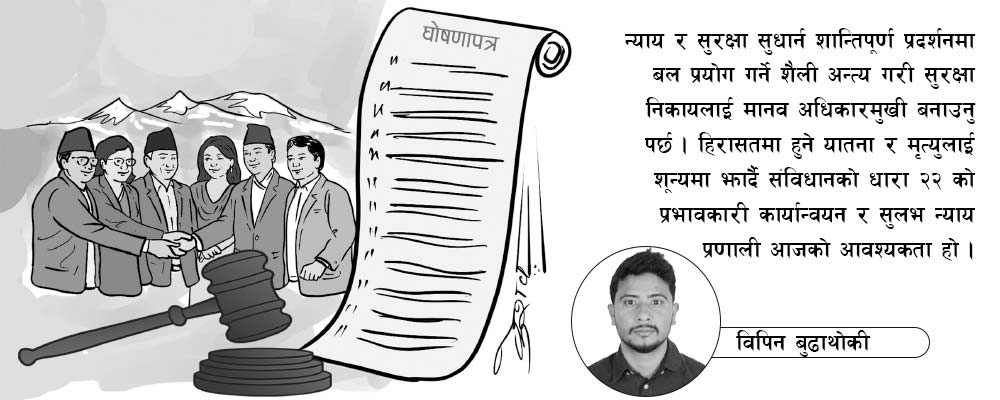 घोषणापत्र
न्याय र सुरक्षा सुधार्न शान्तिपूर्ण प्रदर्शनमा
बल प्रयोग गर्ने शैली अन्त्य गरी सुरक्षा
निकायलाई मानव अधिकारमुखी बनाउनु
पर्छ । हिरासतमा हुने यातना र मृत्युलाई
शून्यमा झार्दै संविधानको धारा २२ को
प्रभावकारी कार्यान्वयन र सुलभ न्याय
प्रणाली आजको आवश्यकता हो ।
विपिन बुढाथोकी